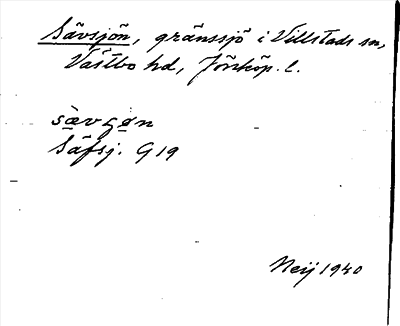 Sävsjön, gränssjö i Villstads sn,
Västbo hd, Jönköp. l.
sævʂøn
Säfsj. G 19
Neij 1940